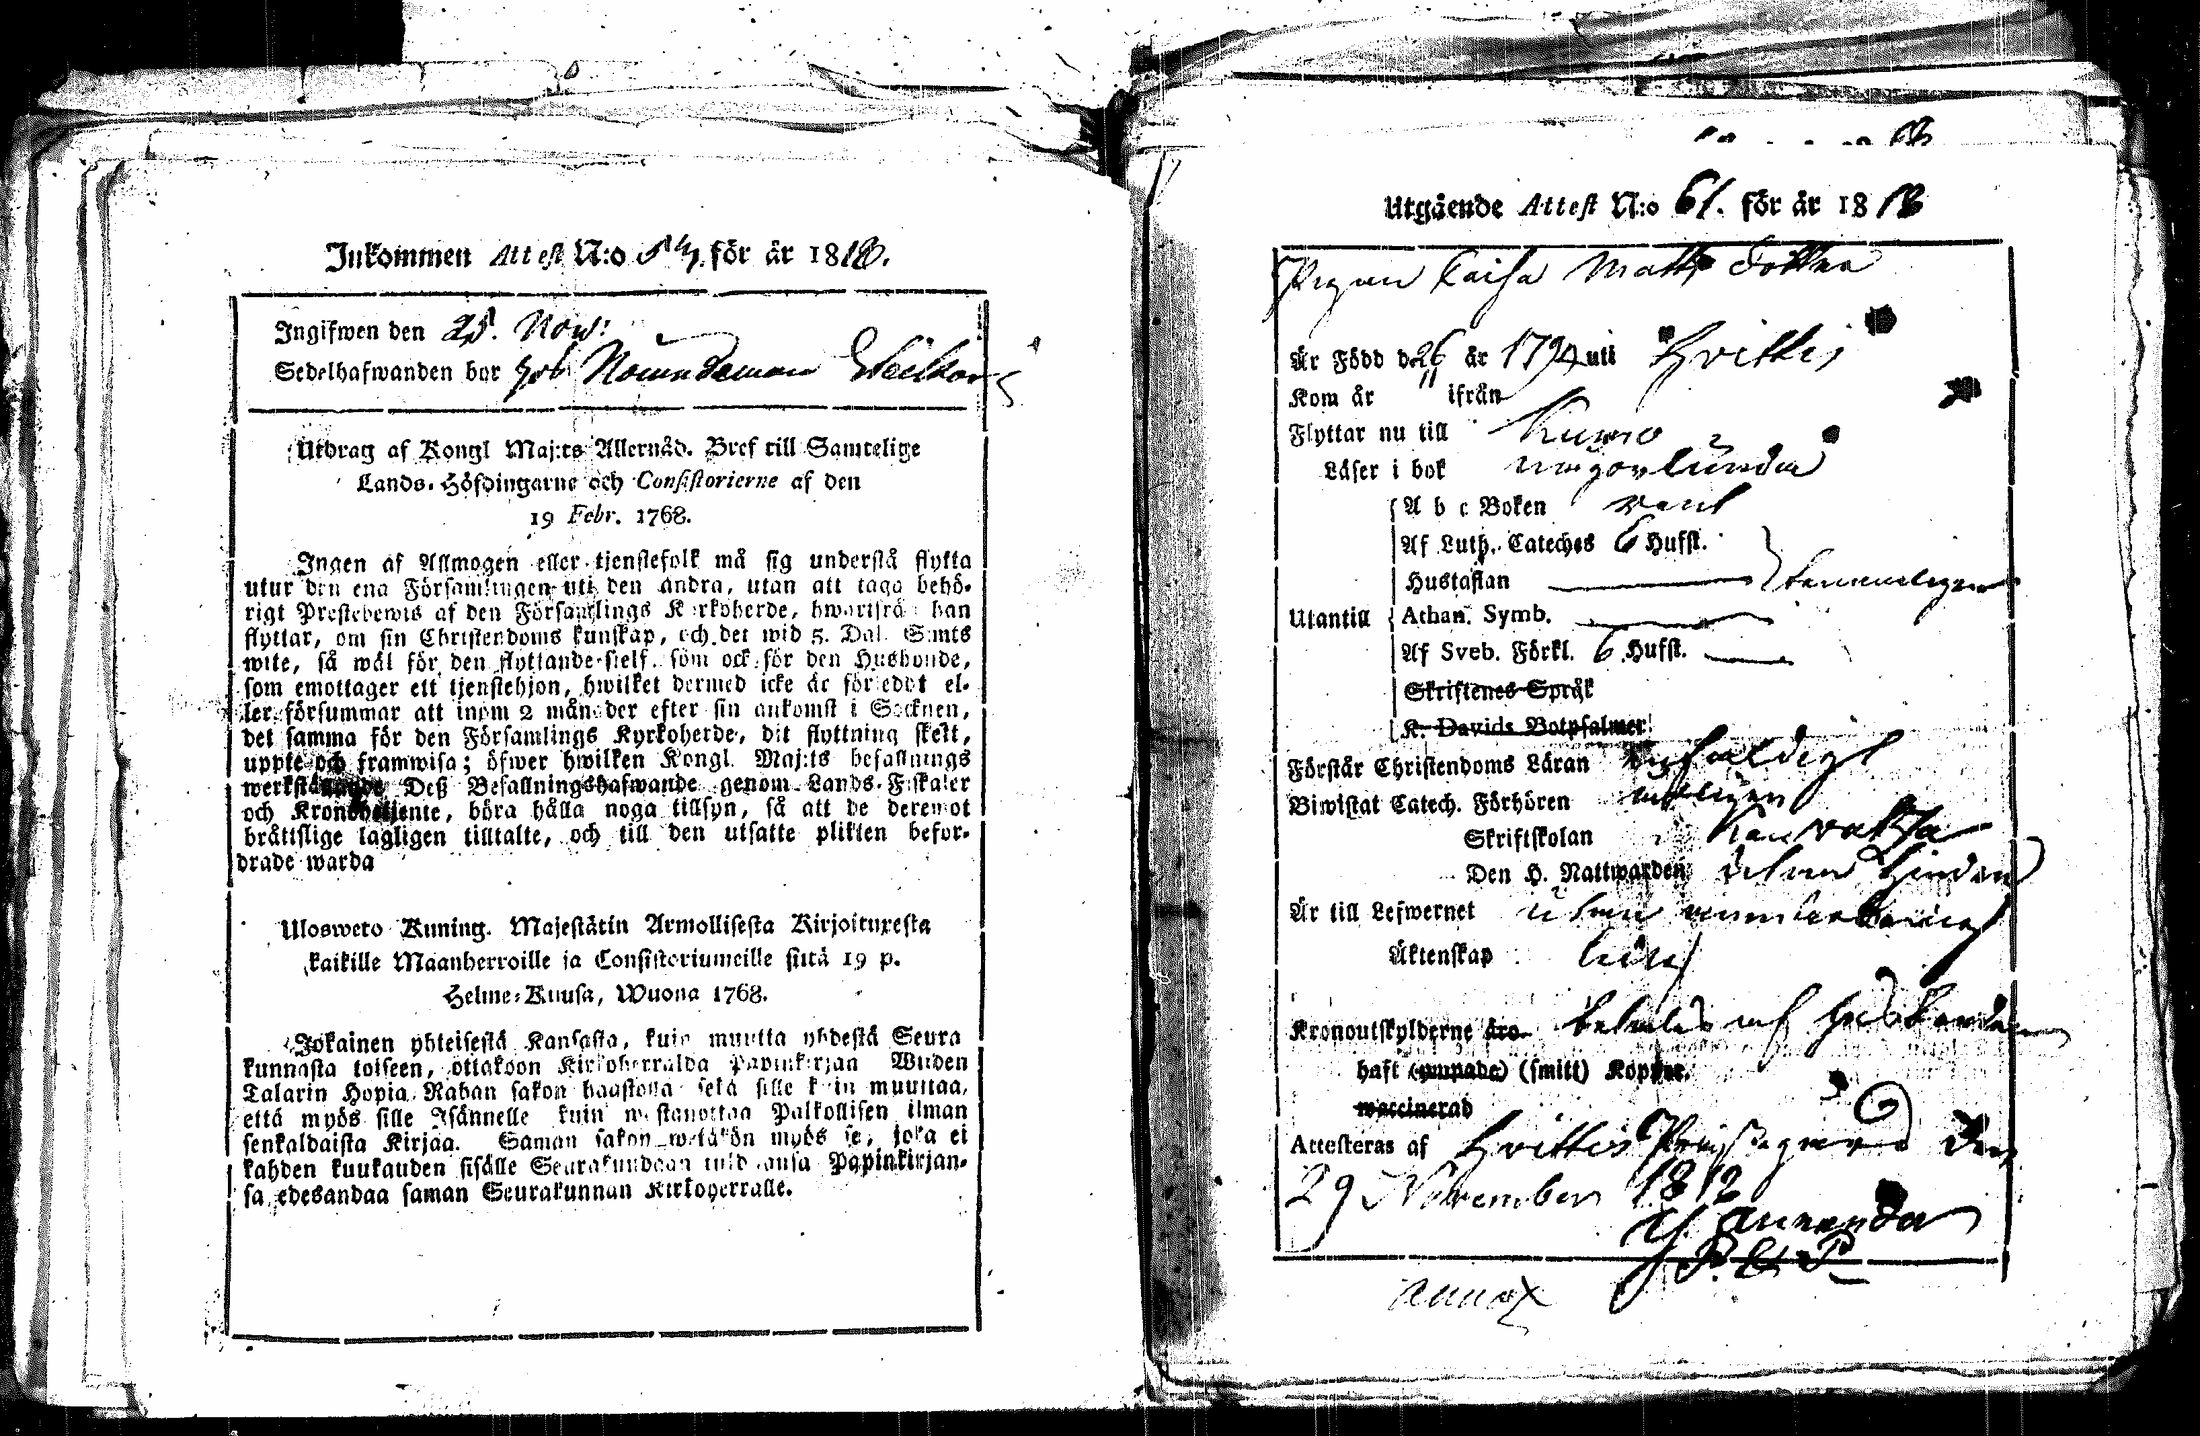 Inkommen Attest N:o för år 1812.
Ingifwen den 25. Nov:
Sedelhafwanden bor hos
Utdrag af Kongl Maj:ts Allernåd. Bref till Samtelige
Lands-Höfdingarne och Consistorierne af den
19 Febr. 1768.
Ingen af Allmogen eller tjenstefolk må sig understå flytta
utur den ena Församlingen uti den andra, utan att taga behö-
rigt Prestebewis af den Församlings Kyrkoherde, hwarifrån han
flyttar, om sin Christendoms kunskap, och det wid 5. Dal. S:mts
wite, så wäl för den flyttande sielf som ock för den Husbonde,
som emottager ett tjenstehjon, hwilket dermed icke är föreddt el-
ler försummar att inom 2 månader efter sin ankomst i Socknen,
det samma för den Församlings Kyrkoherde, dit flyttning skett,
uppte och framwisa; öfwer hwilken Kongl. Maj:ts befallnings
werkställande Deß Befallningshafwande genom Lands-Fiskaler
och Kronobetjente, böra hålla noga tillsyn, så att de deremot
bråttslige lagligen tilltalte, och till den utsatte plikten befor-
drade warda
Ulosweto Kuning. Majestätin Armollisesta Kirjoituxesta
kaikille Maanherroille ja Consistoriumeille siitä 19 p.
Helme-Kuusa, Wuona 1768.
Jokainen yhteisestä Kansasta, kuin muutta yhdestä Seura
kunnasta toiseen, ottakoon Kirkoherralda Papinkirjan Wiiden
Talarin Hopia Rahan sakon haastolla sekä sille kuin muuttaa,
että myös sille Isännelle kuin wastanottaa Palkollisen ilman
senkaldaista Kirjaa. Saman sakon wetäkön myös se, joka ei
kahden kuukauden sisälle Seurakundaan tulduansa Papinkirjan-
sa edesandaa saman Seurakunnan Kirkoherralle.
Utgående Attest N:o 61. för år 1812
Pigan Caisa Matts Dotter
Är Född d. 26 år 1794 uti Hvittis
Kom år " ifrån
Flyttar nu till Kumo
Läser i bok någorlunda
A b c Boken
Af Luth. Cateches 6 Hufst.
Hustaflan
Utantill Athan. Symb.
Af Sveb. Förkl. 6 Hufst.
Skriftenes Språk
K. Davids Botpsalmer
Förstår Christendoms Läran enfaldigt
Biwistat Catech. Förhören
Skriftskolan
Den H. Nattwarden utan hinder
Är till Lefwernet utan anmärkning
Äktenskap ledig
Kronoutskylderne äro betalas af Husbonden
haft (ympade) (smitt) Koppor.
waccinerad
Attesteras af Hvittis Prästegård den
29 November 1812